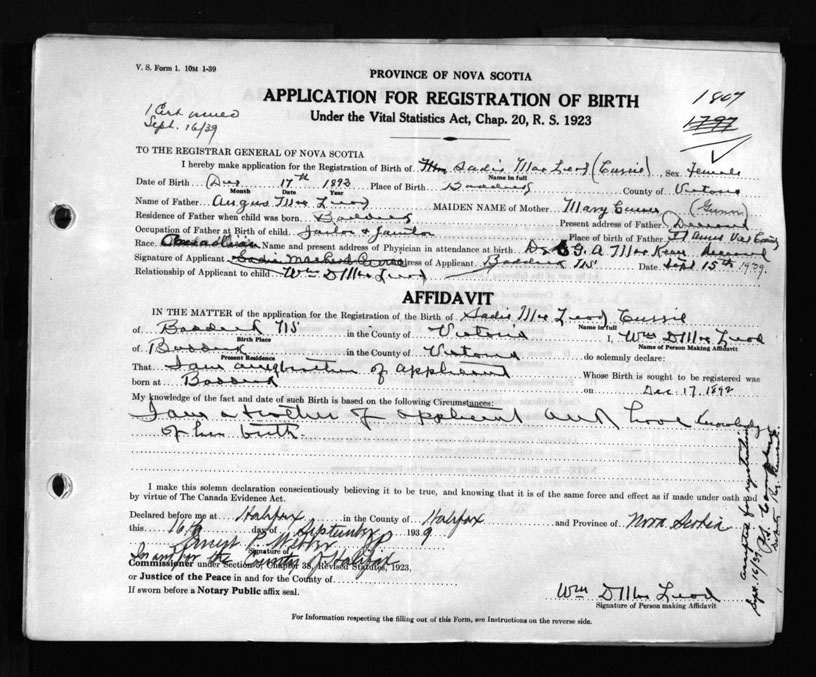 V. S. Form 1. 10M 1-39
PROVINCE OF NOVA SCOTIA
1 Cert issued
Sept. 16/39
APPLICATION FOR REGISTRATION OF BIRTH
1807
1797
Under the Vital Statistics Act, Chap. 20, R. S. 1923
TO THE REGISTRAR GENERAL OF NOVA SCOTIA
I hereby make application for the Registration of Birth of Sadie Mac Leod (Currie) Sex Female
Name in full
Date of Birth Dec 17th 1892 Place of Birth Baddeck County of Victoria
Month Date Year
Name of Father Angus Mac Leod MAIDEN NAME of Mother Mary (Gunn)
Residence of Father when child was born Baddeck Present address of Father Deceased
Occupation of Father at Birth of child Place of birth of Father St Anns Vic County
Race Canadian Name and present address of Physician in attendance at birth Dr G. A. Mac Keen deceased
Signature of Applicant Address of Applicant Baddeck NS Date Sept 15th 1939
Relationship of Applicant to child Wm D Mac Leod
AFFIDAVIT
IN THE MATTER of the application for the Registration of the Birth of Sadie Mac Leod Currie
Name in full
of Baddeck NS in the County of Victoria I, Wm D Mac Leod
Birth Place Name of Person Making Affidavit
of Baddeck in the County of Victoria do solemnly declare:
Present Residence
That I am a brother of applicant Whose Birth is sought to be registered was
born at Baddeck on Dec 17. 1892
My knowledge of the fact and date of such Birth is based on the following Circumstances:
I am a brother of applicant and have knowledge
of her birth.
I make this solemn declaration conscientiously believing it to be true, and knowing that it is of the same force and effect as if made under oath and
by virtue of The Canada Evidence Act.
Declared before me at Halifax in the County of Halifax and Province of Nova Scotia
this 16th day of September 1939
Ernest P. Webber
Signature of
In and for the County of Halifax
Commissioner under Section of Chapter 38, Revised Statutes, 1923,
or Justice of the Peace in and for the County of
If sworn before a Notary Public affix seal.
Wm D Mac Leod
Signature of Person making Affidavit
For Information respecting the filling out of this Form, see Instructions on the reverse side.
accepted for registration
Sept. 16/39